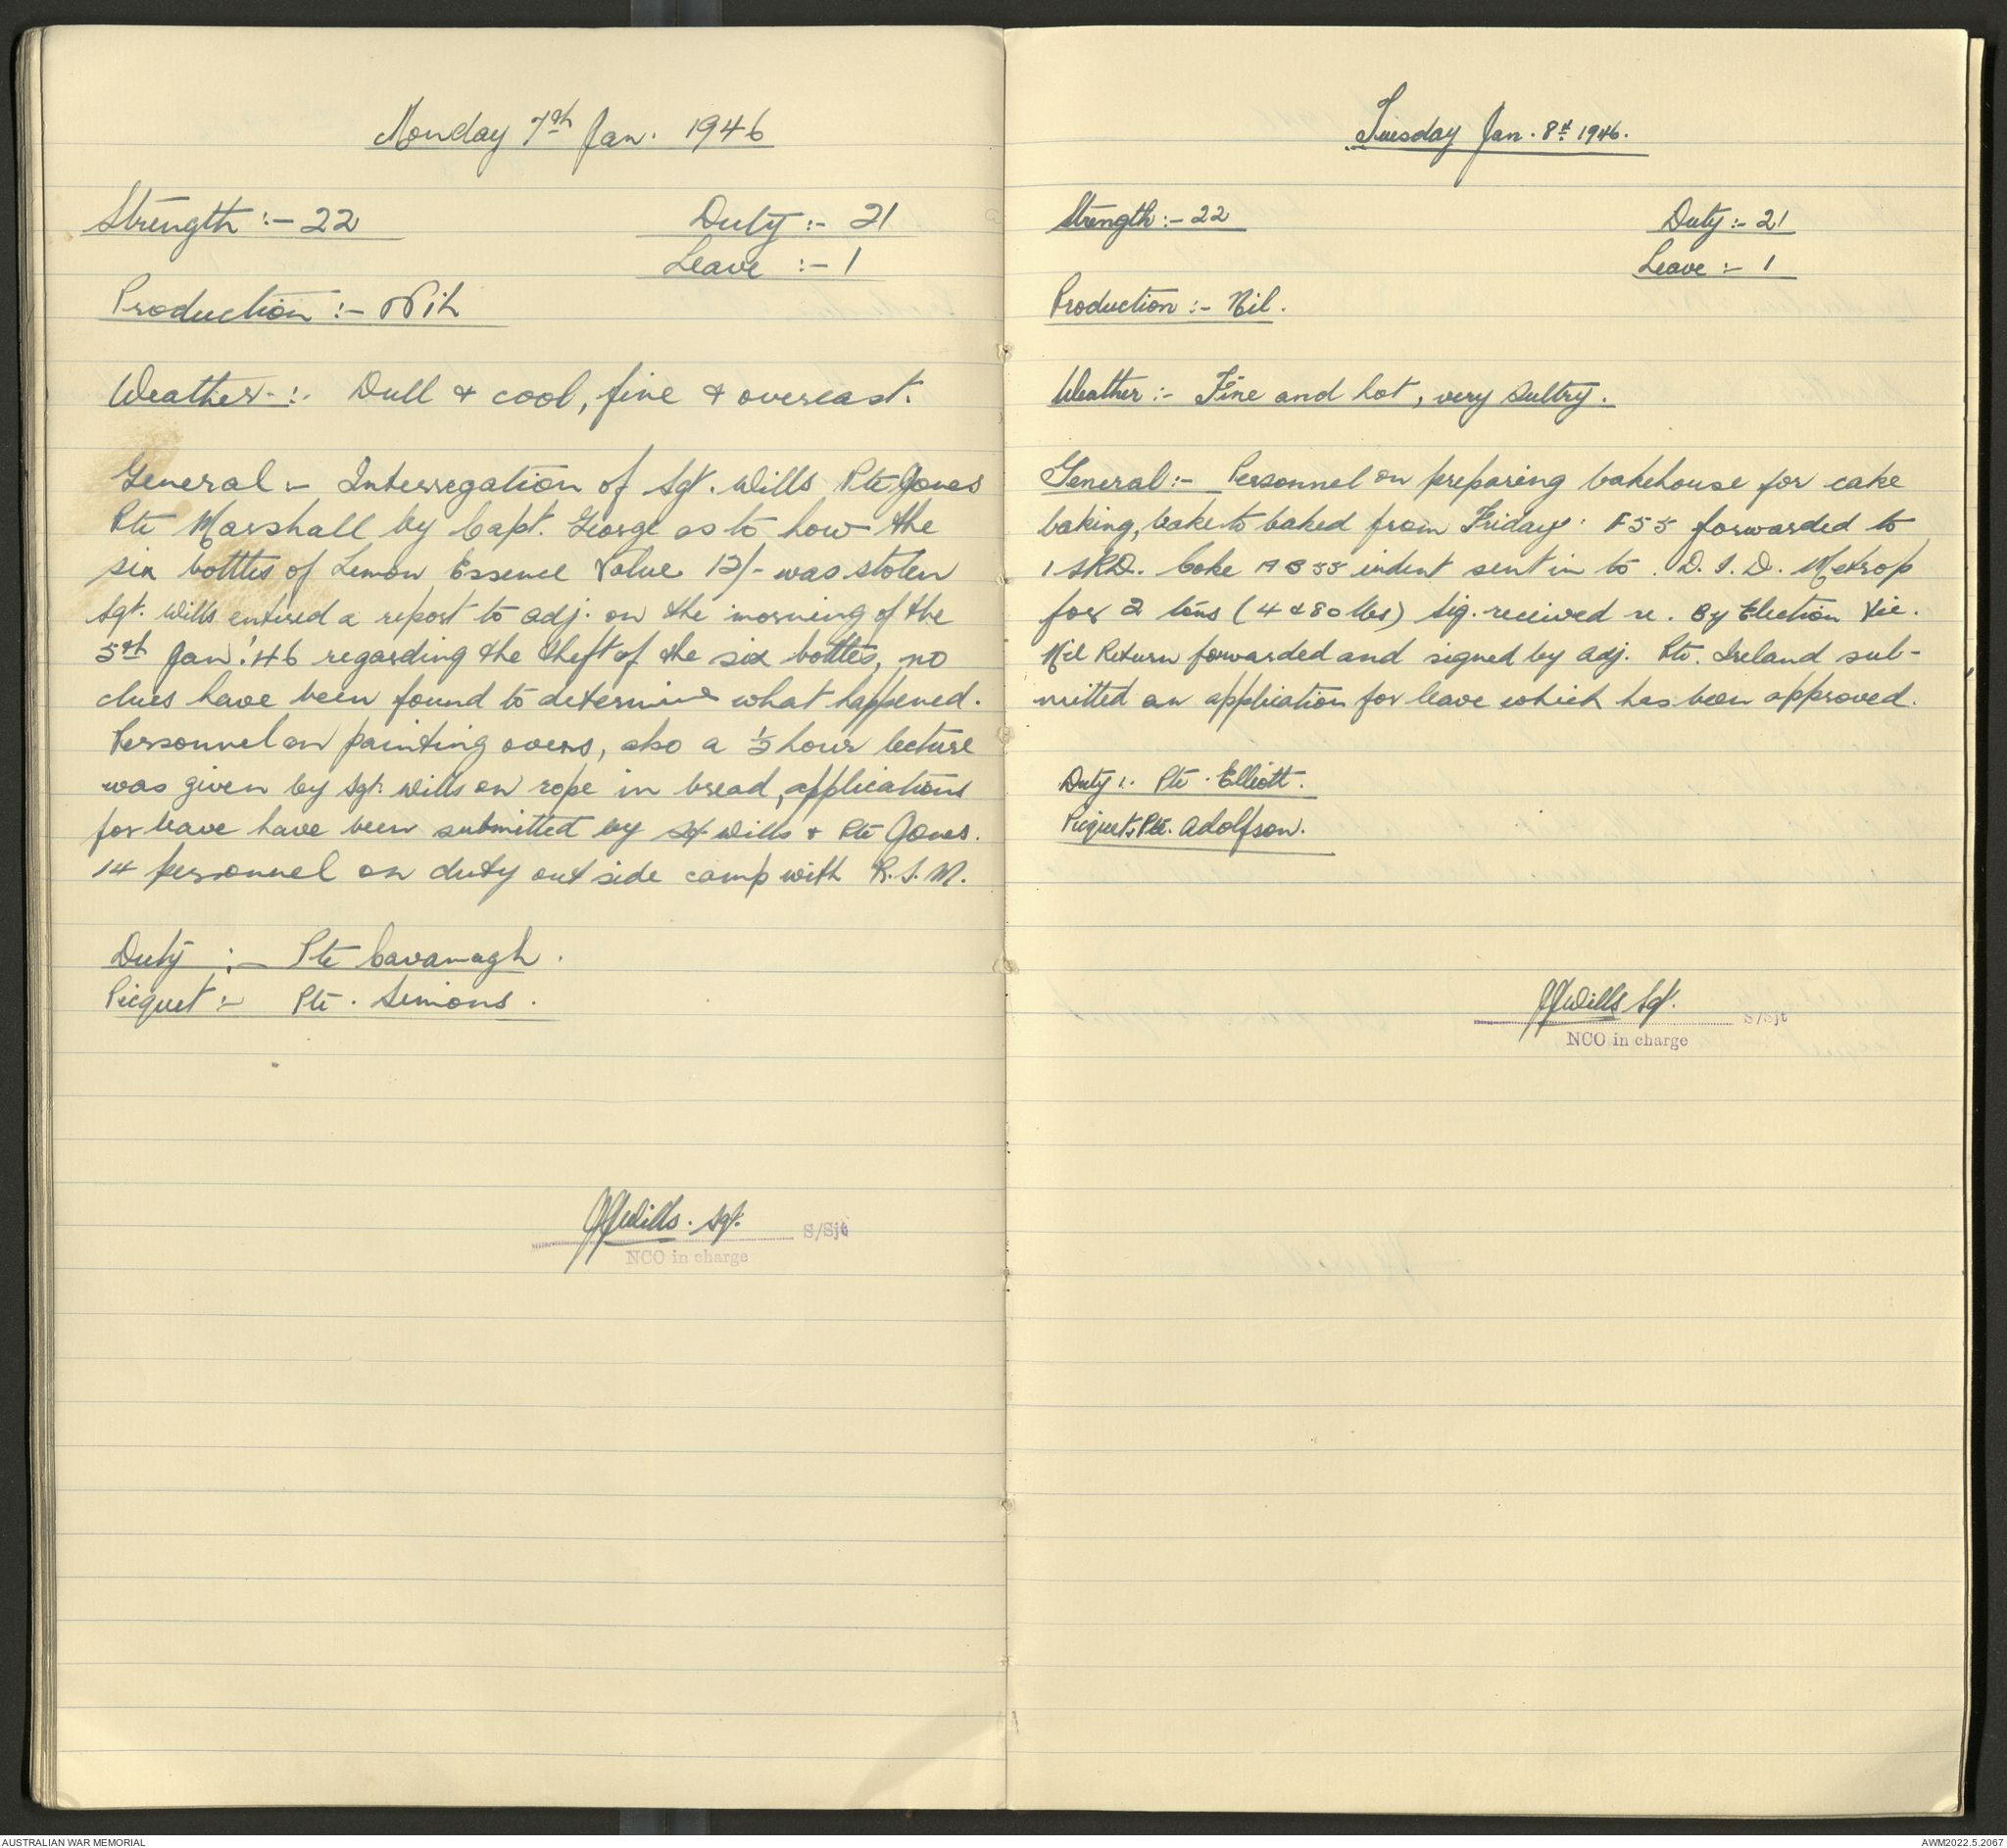 Monday 7th Jan. 1946
Strength :- 22
Duty :- 21
Leave :- 1
Production :- Nil
Weather :- Dull & cool, fine & overcast.
General :- Interregation of Sgt. Wills Pte Jones
Pte Marshall by Capt. George as to how the
six botttles of Lemon Essence Value 12/- was stolen
Sgt. Wills entered a report to adj. on the morning of the
5th Jan. '46 regarding the theft of the six bottles, no
clues have been found to determine what happened.
Personnel on painting ovens, also a ½ hour lecture
was given by Sgt. Wills on rope in bread, applications
for leave have been submitted by Sgt Wills & Pte Jones.
14 personnel on duty out side camp with R.S.M.
Duty :- Pte Cavanagh.
Picquet :- Pte. Simons.
JJWills. Sgt. S/Sjt
NCO in charge
Tuesday Jan. 8th 1946.
Strength :- 22
Duty :- 21
Leave :- 1
Production :- Nil.
Weather :- Fine and hot, very sultry.
General :- Personnel on preparing bakehouse for cake
baking, to baked from Friday. F55 forwarded to
1 SRD. Coke AB55 indent sent in to. D.I.D. Metrop
for 2 tons (4480 lbs) Sig. received re. By Election Vic.
Nil Return forwarded and signed by adj. Pte. Ireland sub-
mitted an application for leave which has been approved.
Duty :. Pte. Elliott.
Picquet. Pte. Adolfson.
JJWills Sgt. S/Sjt
NCO in charge
AUSTRALIAN WAR MEMORIAL
AWM2022.5.2067